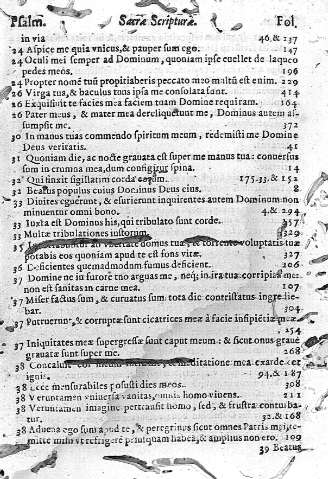 Psalm. Sacræ Scripturæ. Fol.
in via 46.& 137
24 Aspice me quia vnicus, & pauper sum ego. 147
24 Oculi mei semper ad Dominum, quoniam ipse euellet de laqueo
pedes meos. 196
24 Propter nomē tuū propitiaberis peccato meo multū est enim. 220
26 Virga tua, & baculus tuus ipsa me consolata sunt. 414
26 Exquisiuit te facies mea faciem tuam Domine requiram. 164
26 Pater meus, & mater mea dereliquerunt me, Dominus autem as-
sumpsit me. 372
30 In manus tuas commendo spiritum meum, redemisti me Domine
Deus veritatis. 41
31 Quoniam die, ac nocte grauata est super me manus tua: conuersus
sum in ærumna mea, dum configitur spina. 14
32 Qui finxit sigillatim corda eorum. 175.33.& 152
32 Beatus populus cuius Dominus Deus eius. 8
33 Diuites eguerunt, & esurierunt inquirentes autem Dominum non
minuentur omni bono. 4.& 294
33 Iuxta est Dominus his, qui tribulato sunt corde. 357
33 Multæ tribulationes iustorum. 329
35 ab vbertate domus tuæ, & torrente voluptatis tuæ
potabis eos quoniam apud te est fons vitæ. 327
36 Deficientes quemadmodum fumus deficient. 206
37 Domine ne in furore tuo arguas me, neq; in ira tua corripias me:
non est sanitas in carne mea. 107
37 Miser factus sum, & curuatus sum tota die contristatus ingredie-
bar. 304
37 Putruerunt, & corruptæ sunt cicatrices meæ à facie insipiētiæ meæ
154
37 Iniquitates meæ supergressæ sunt caput meum: & sicut onus graue
grauatæ sunt super me. 268
38 Concaluit cor meum meditatione mea exardescet
ignis. 94.& 187
38 Ecce mensurabiles posuisti dies meos. 308
38 Veruntamen vniuersa vanitas, omnis homo viuens. 211
38 Veruntamen imagine pertransit homo, sed, & frustra conturba-
tur. 32.& 168
38 Aduena ego sum apud te, & peregrinus sicut omnes Patris mei, re-
mitte mihi vt refrigerē priusquam habeā, & amplius non ero. 109
39 Beatus